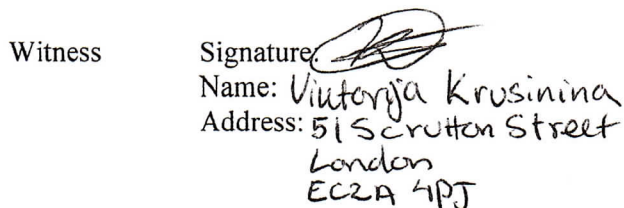 Witness Signature:
Name: Viktorija Krusinina
Address: 51 Scrutton Street
London
EC2A 4PJ